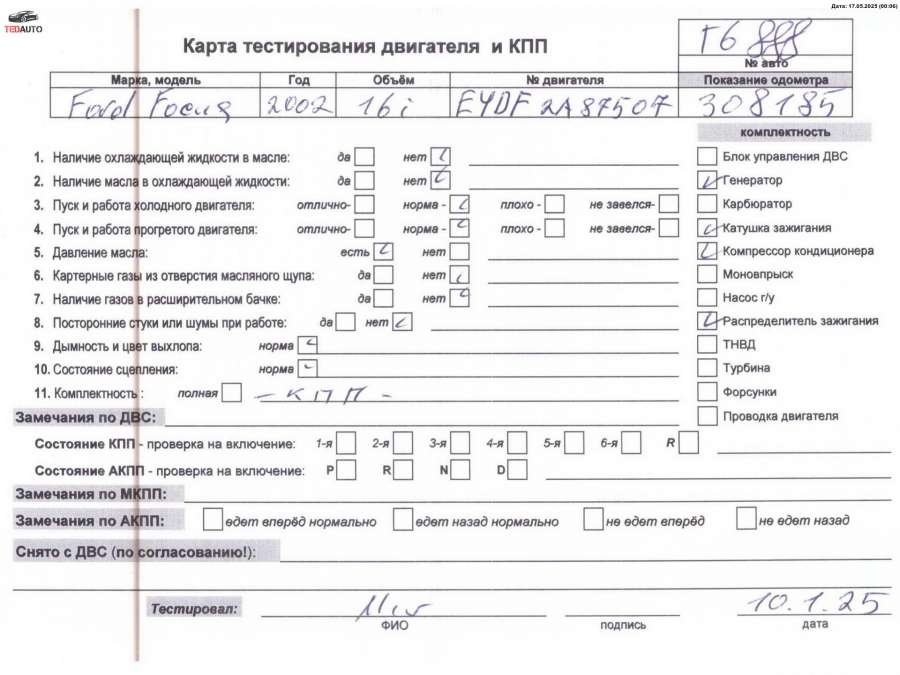 Дата: 17.05.2025 (00:06)
TEDAUTO
Карта тестирования двигателя и КПП
Г6 888
№ авто
Марка, модель Год Объём № двигателя Показание одометра
Ford Focus 2002 16i EYDF 2A87507 308185
комплектность
1. Наличие охлаждающей жидкости в масле: да нет
Блок управления ДВС
2. Наличие масла в охлаждающей жидкости: да нет
Генератор
3. Пуск и работа холодного двигателя: отлично- норма - плохо - не завелся-
Карбюратор
4. Пуск и работа прогретого двигателя: отлично- норма - плохо - не завелся-
Катушка зажигания
5. Давление масла: есть нет
Компрессор кондиционера
6. Картерные газы из отверстия масляного щупа: да нет
Моновпрыск
7. Наличие газов в расширительном бачке: да нет
Насос г/у
8. Посторонние стуки или шумы при работе: да нет
Распределитель зажигания
9. Дымность и цвет выхлопа: норма
ТНВД
10. Состояние сцепления: норма
Турбина
11. Комплектность : полная - КПП -
Форсунки
Замечания по ДВС:
Проводка двигателя
Состояние КПП - проверка на включение: 1-я 2-я 3-я 4-я 5-я 6-я R
Состояние АКПП - проверка на включение: P R N D
Замечания по МКПП:
Замечания по АКПП: едет вперёд нормально едет назад нормально не едет вперёд не едет назад
Снято с ДВС (по согласованию!):
Тестировал: 10.1.25
ФИО подпись дата